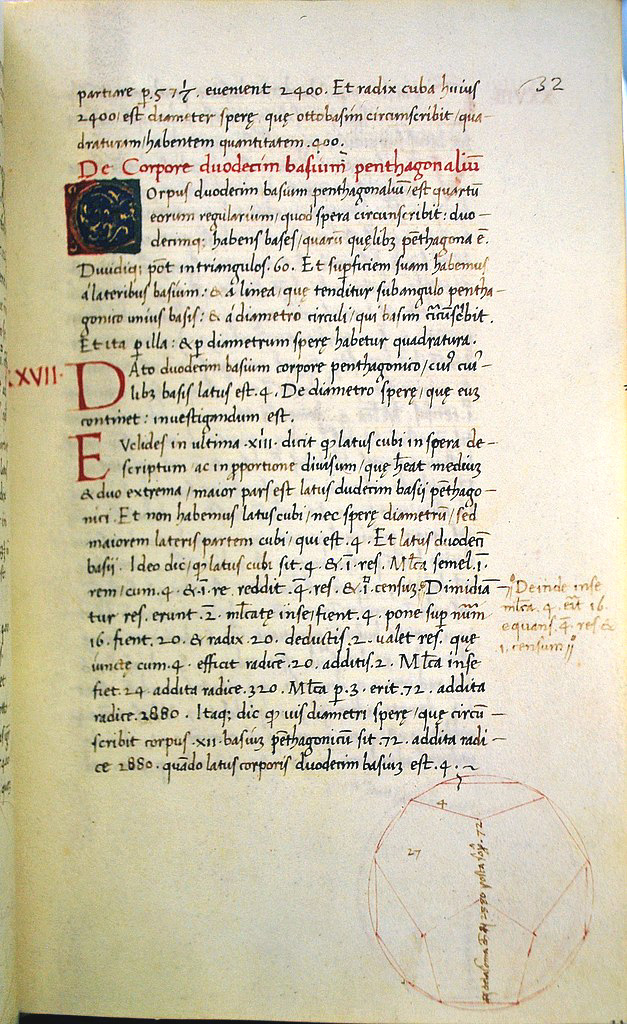 32
partiare p. 57 ½. evenient 2400. Et radix cuba huius
2400/est diameter sperę, quę ottobasim circumscribit/qua-
draturam/habentem quantitatem .400.
De Corpore duodecim basium penthagonalium̄
Corpus duodecim basium penthagonaliū/est quartū
eorum regularium/quod spera circunscribit: duo-
decimq; habens bases/quarū quęlibꝫ pēthagona ē.
Duudiqꝫ pōt in triangulos .60. Et supficiem suam habemus
a lateribus basium: & a linea, quę tenditur subangulo pentha-
gonico unius basis: & a diametro circuli/qui basim cīcūscībit.
Et ita p illa: & p diametrum sperę habetur quadratura.
.XVII. Dato duodecim basium corpore penthagonico/cuiꝰ cui'
libꝫ basis latus est .4. De diametro sperę, quę euꝫ
continet: investigandum est.
Evclides in ultima .xiii. dicit ꝙ latus cubi in spera de-
scriptum/ac in pportione divisum/quę heat mediuꝫ
& duo extrema/maior pars est latus dudecim basii pēthago-
nici. Et non habemus latus cubi/nec sperę diametrū/sed
maiorem lateris partem cubi/qui est .4. Et latus duodecī
basii. Ideo dic/ꝙ latus cubi sit .4. & .ī. res. Ml̄ca semel .ī.
rem/cum .4. & .ī. re reddit .4̄. res. & .ī. censuꝫ. Dimidiā-
tur res. erunt .2̄. ml̄catę inse/fient .4. pone sup nūm
16. fient .20. & radix .20. deductis .2. valet res. quę
iunctę cum .4. efficit radicē .20. additis .2. Ml̄ca inse
fiet .24. addita radice .320. Ml̄ca p. 3. erit .72. addita
radice .2880. Itaq; dic ꝙ uis diametri sperę/quę circū-
scribit corpus .xii. basiuꝫ pēthagonicū sit .72. addita radi-
ce 2880. quādo latus corporis duodecim basiuꝫ est .4.
Deinde inse
ml̄ca .4. erit 16.
equans .4̄. res &
.1. censum
4